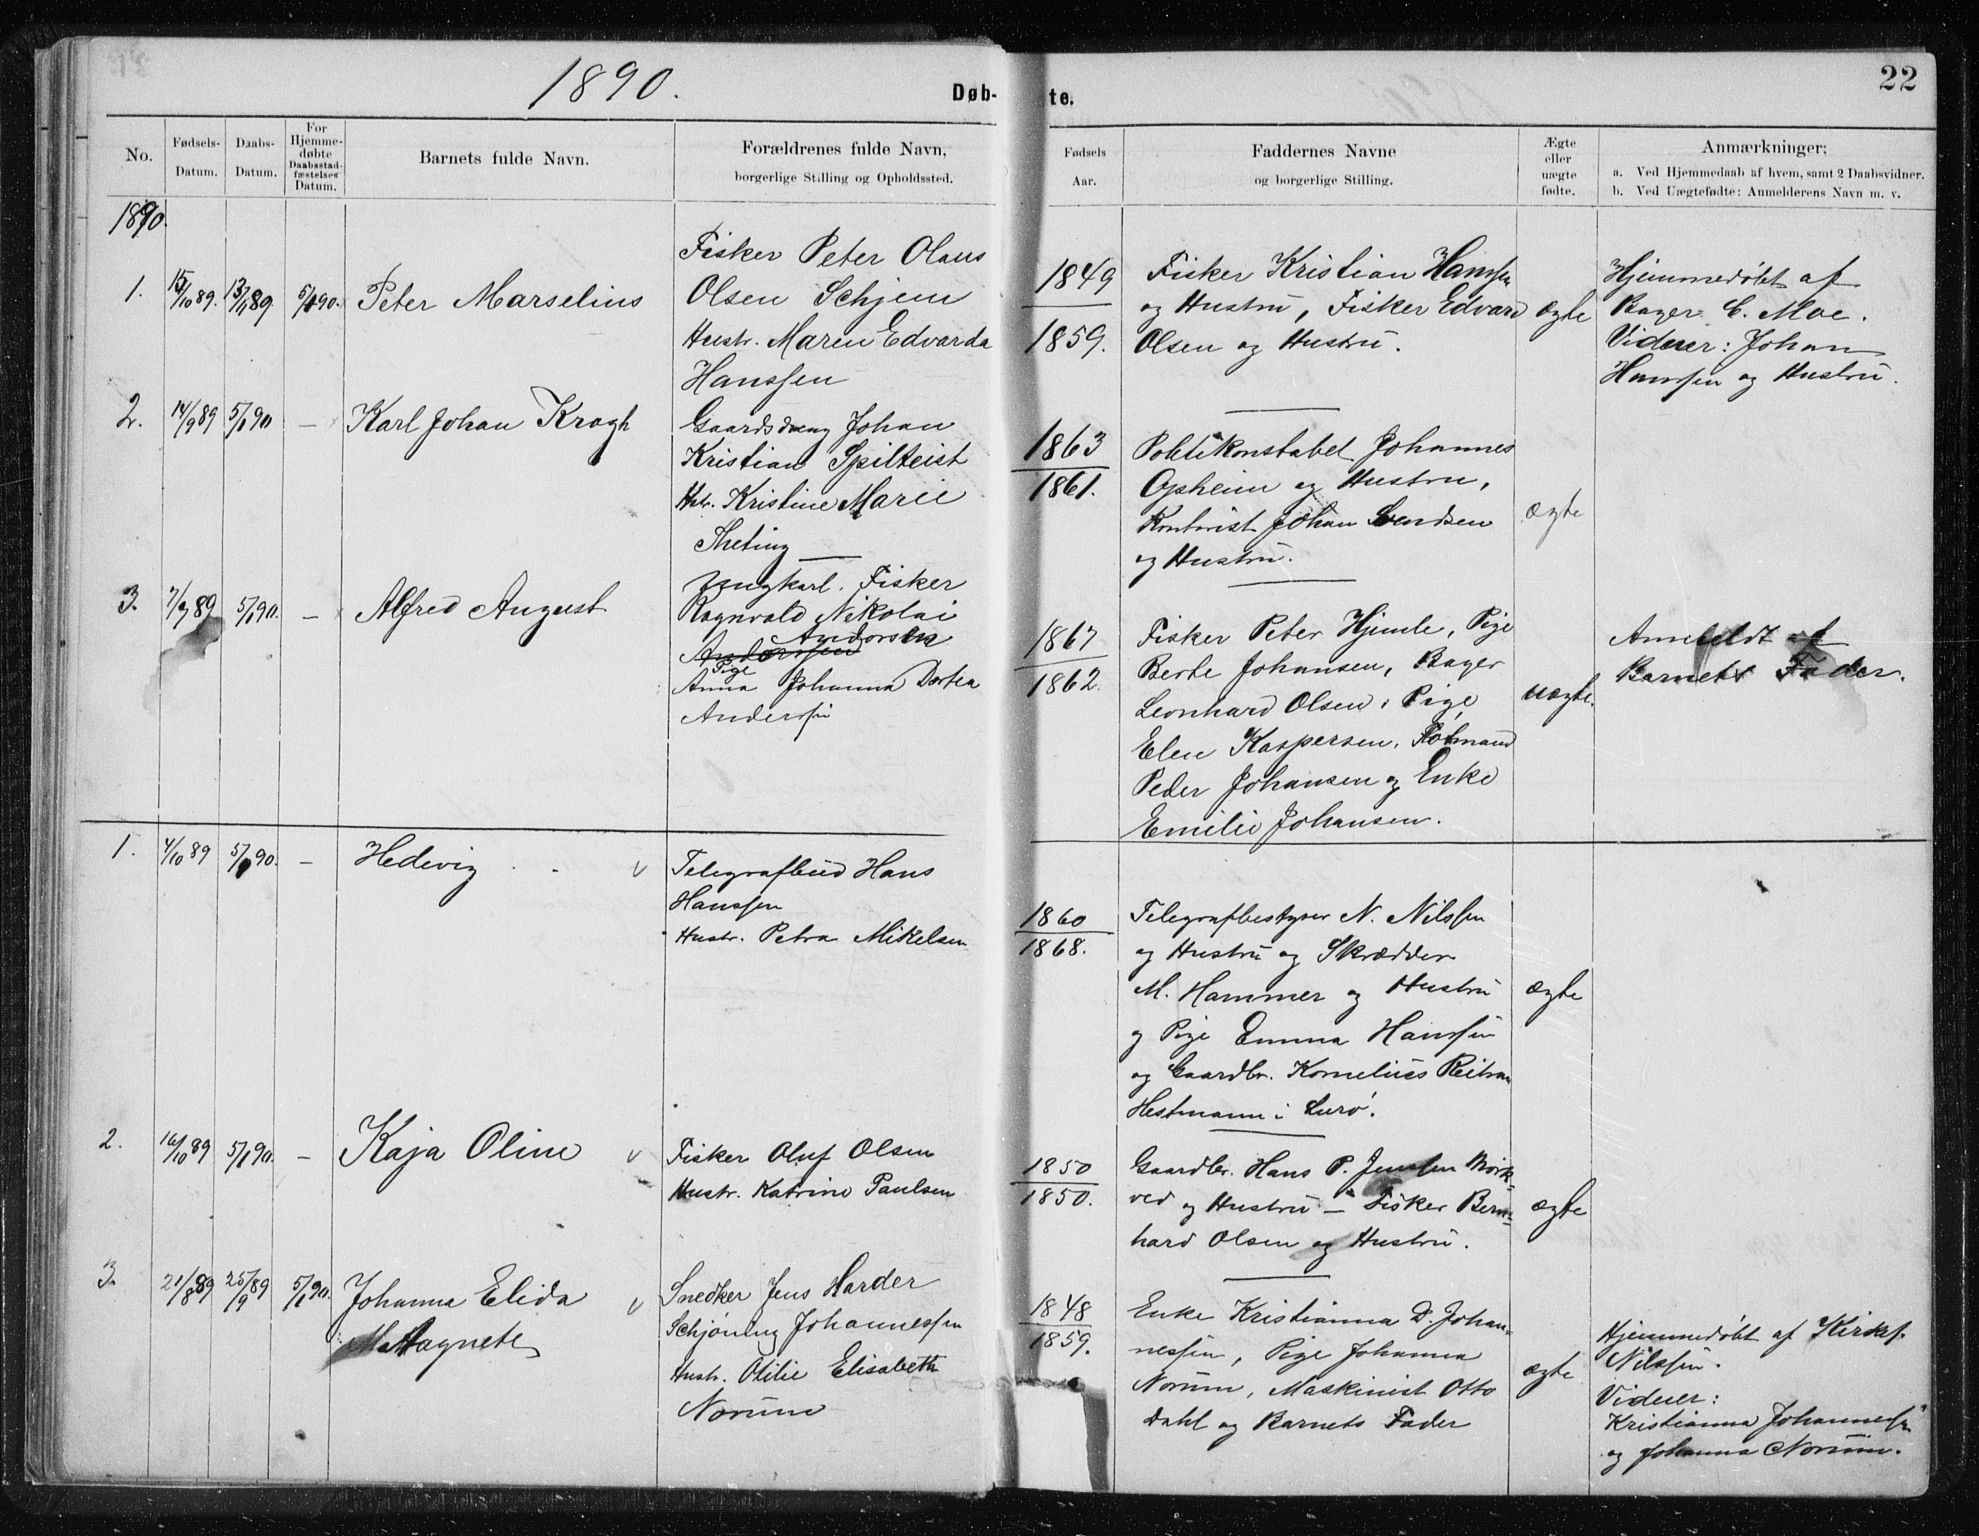 1890.
Døb-
te.
22
No.
Fødsels-
Datum.
Daabs-
Datum.
For
Hjemme-
døbte
Daabsstad-
fæstelses
Datum.
Barnets fulde Navn.
Forældrenes fulde Navn,
borgerlige Stilling og Opholdssted.
Fødsels
Aar.
Faddernes Navne
og borgerlige Stilling.
Ægte
eller
uægte
fødte.
Anmærkninger;
a. Ved Hjemmedaab af hvem, samt 2 Daabsvidner.
b. Ved Uægtefødte: Anmelderens Navn m. v.
1890.
1.
15/10 89.
13/11 89
5/1 90.
Peter Marselius
Fisker Peter Olaus
Olsen Schjem
Hustr. Maren Edvarda
Hanssen
1849
1859.
Fisker Kristian Hanssen
og Hustru, Fisker Edvard
Olsen og Hustru.
ægte
Hjemmedøbt af
Bager C. Moe.
Vidner: Johan
Hanssen og Hustru.
2.
14/9 89
5/1 90
—
Karl Johan Krogh
Gaardsdreng Johan
Kristian
Hstr. Kristine Marie
1863
1861.
Politikonstabel Johannes
Opheim og Hustru,
Kontorist Johan Svendsen
og Hustru.
ægte
3.
7/9 89
5/1 90.
—
Alfred August
Ungkarl. Fisker
Ragnvald Nikolai
Andersen
Anderssen
Pige
Anna Johanna Dortea
Anderssen
1867
1862.
Fisker Peter Hjemle, Pige
Berte Johansen, Bager
Leonhard Olsen, Pige
Elen Kaspersen,
Peder Johansen og Enke
Emilie Johansen.
uægte.
Anmeldt af
Barnets Fader.
1.
4/10 89
5/1 90.
—
Hedevig
Telegrafbud Hans
Hanssen
Hustr. Petra Mikelsen
1860
1868.
Telegrafbestyrer N. Nilssen
og Hustru og Skrædder
M. Hammer og Hustru
og Pige Emma Hanssen
og Gaardbr. Kornelius
Hestmann i Lurø.
ægte
2.
16/10 89
5/1 90.
—
Kaja Oline
Fisker Oluf Olsen
Hustr. Katrine Paulsen
1850
1850.
Gaardbr. Hans P. Jenssen Mørk-
ved og Hustru — Fisker Bern-
hard Olsen og Hustru.
ægte
3.
21/8 89
25/9 89
5/1 90.
Johanna Elida
Magnete
Snedker Jens Harder
Schjøning Johannessen
Hustr. Otilie Elisabeth
Norum
1848
1859.
Enke Kristianna D. Johan-
nessen, Pige Johanna
Norum, Maskinist Otto
Dahl og Barnets Fader
ægte
Hjemmedøbt af Kirkes.
Nilssen.
Vidner:
Kristianna Johannessen
og Johanna Norum.